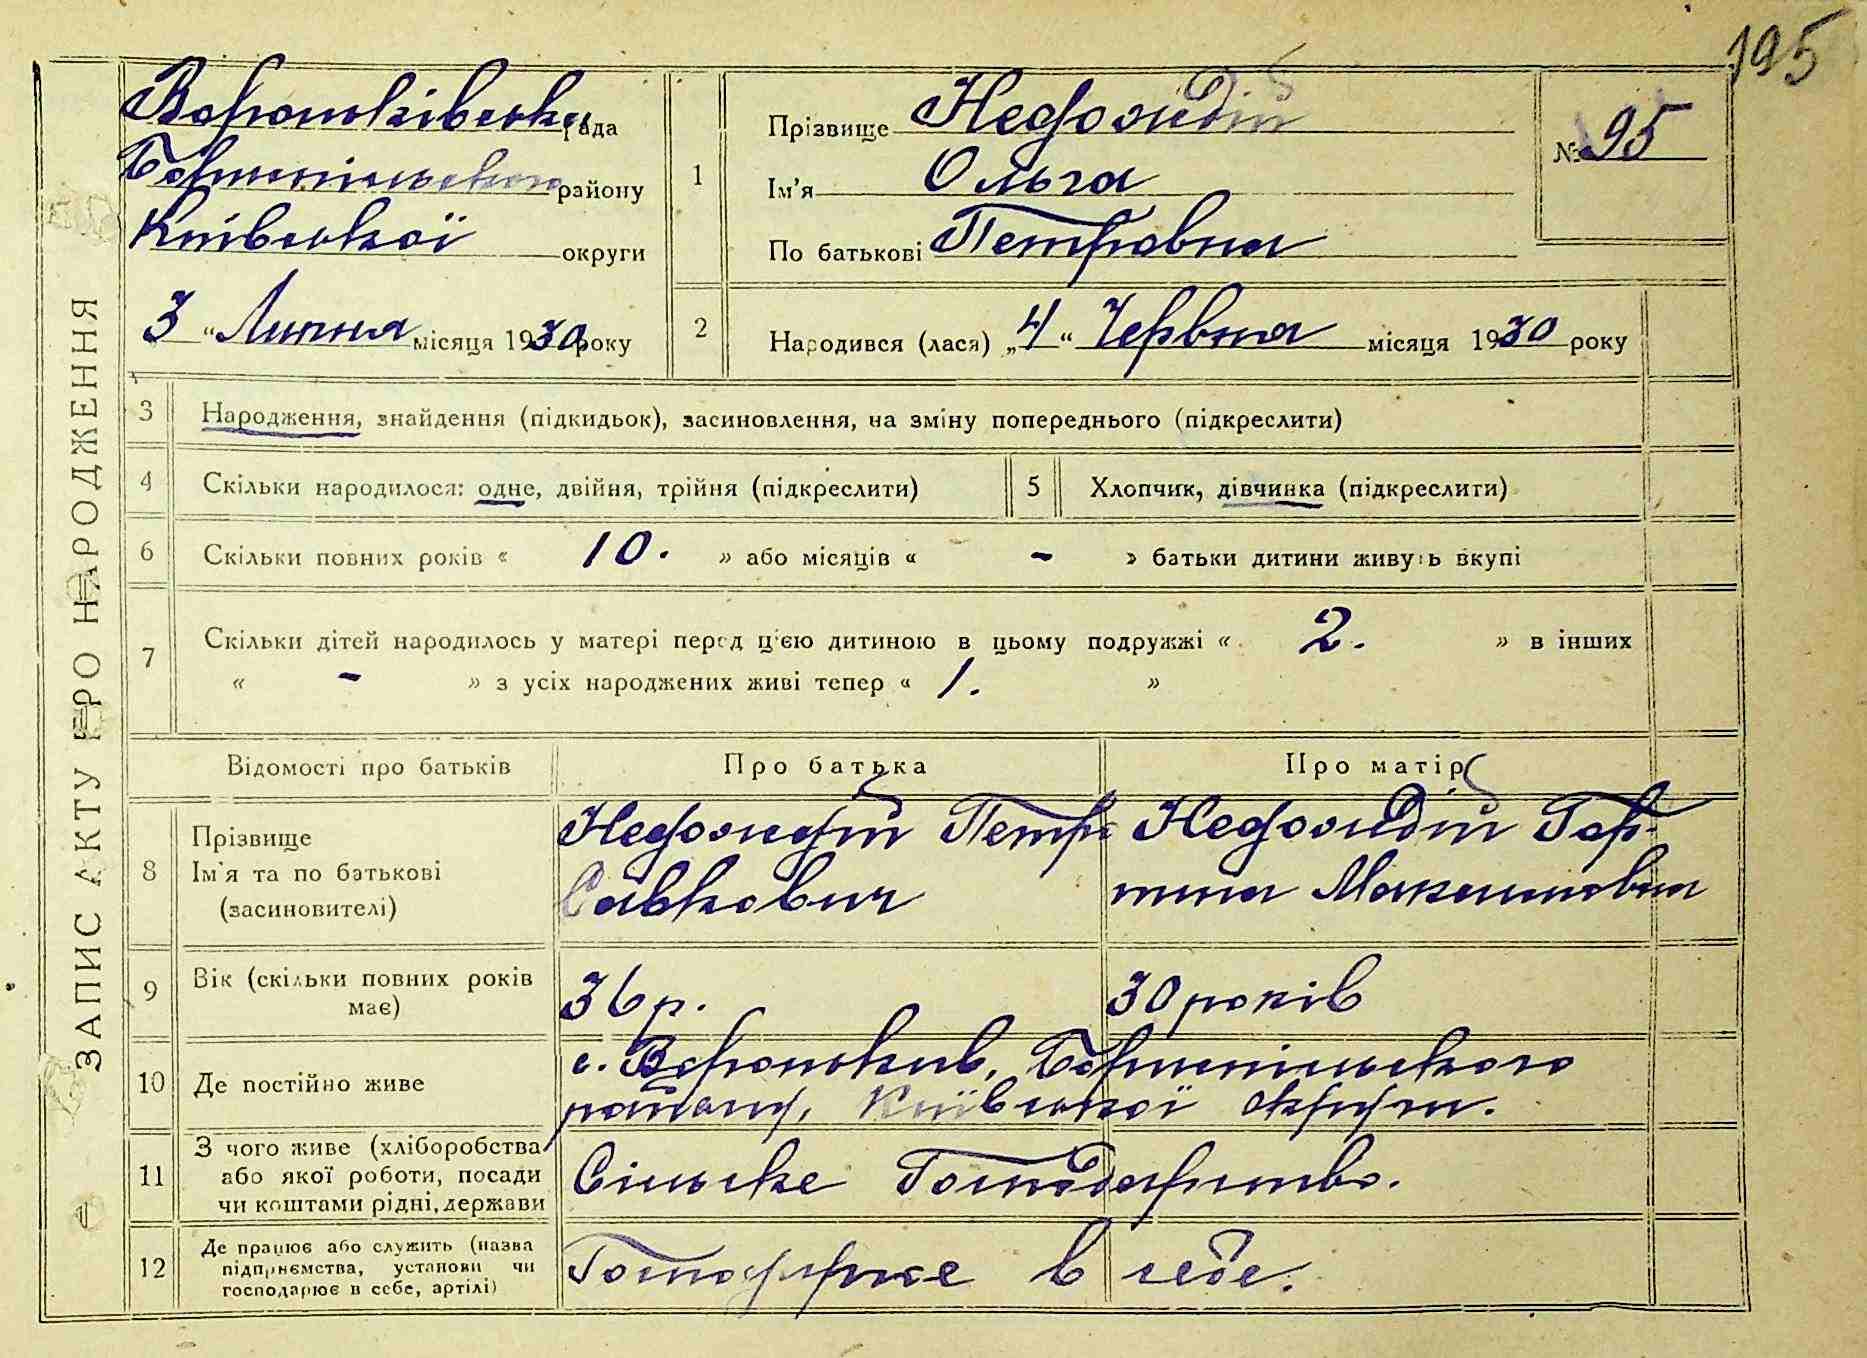 195
Вороньківська рада
Бориспільського району
Київської округи
3 " Липня місяця 1930 року
1
Прізвище Недождій
Ім'я Ольга
По батькові Петровна
№ 95
2
Народився (лася) „4" Червня місяця 1930 року
ЗАПИС АКТУ ПРО НАРОДЖЕННЯ
3 Народження, знайдення (підкидьок), засиновлення, на зміну попереднього (підкреслити)
4 Скільки народилося: одне, двійня, трійня (підкреслити)
5 Хлопчик, дівчинка (підкреслити)
6 Скільки повних років « 10. » або місяців « - » батьки дитини живуть вкупі
7 Скільки дітей народилось у матері перед цією дитиною в цьому подружжі « 2. » в інших
« - » з усіх народжених живі тепер « 1. »
Відомості про батьків
Про батька
Про матір
8
Прізвище
Ім'я та по батькові
(засиновителі)
Недождій Петро
Савкович
Недождій Гор-
пина Максимовна
9
Вік (скільки повних років
має)
36 р.
30 років
10 Де постійно живе
с. Вороньків, Бориспільського
району, Київської округи.
11
З чого живе (хліборобства
або якої роботи, посади
чи коштами рідні, держави
Сільське Господарство.
12
Де працює або служить (назва
підприємства, установи чи
господарює в себе, артілі)
Господарює в себе.